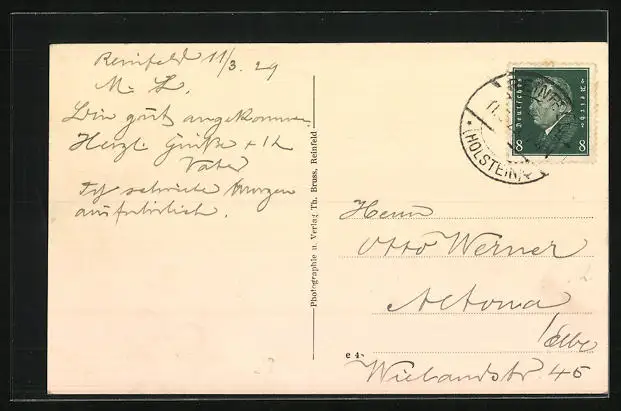 Reinfeld 11/3. 29
M. L.
Bin gut angekommen
Herzl. Grüße + Ik
Vater
Ich schreibe Morgen
ausführlich.
Photographie u. Verlag Th. Bruss, Reinfeld
Deutsches Reich
8 8
REINFELD
(HOLSTEIN)
Herrn
Otto Werner
Altona
/Elbe
e 4
Wielandstr 45